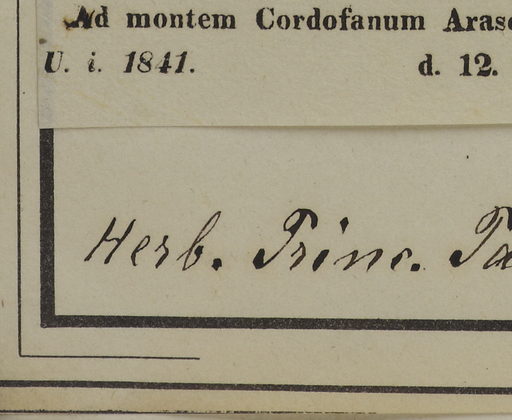 Ad montem Cordofanum Aras
U. i. 1841. d. 12.
Herb. Princ. Pa